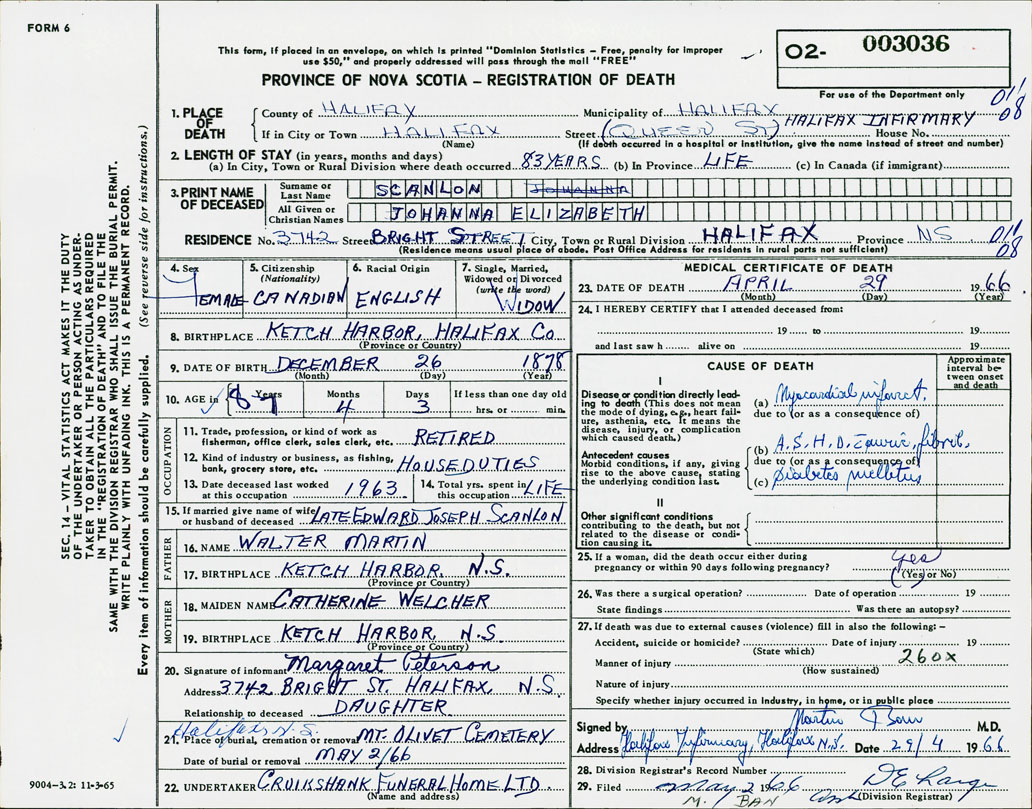 FORM 6
This form, if placed in an envelope, on which is printed "Dominion Statistics – Free, penalty for improper
use $50," and properly addressed will pass through the mail "FREE"
PROVINCE OF NOVA SCOTIA – REGISTRATION OF DEATH
02- 003036
For use of the Department only
011
08
1. PLACE OF DEATH
County of HALIFAX Municipality of HALIFAX
HALIFAX INFIRMARY
If in City or Town HALIFAX Street (QUEEN ST) House No.
(Name) (If death occurred in a hospital or institution, give the name instead of street and number)
2. LENGTH OF STAY (in years, months and days)
(a) In City, Town or Rural Division where death occurred 83 YEARS (b) In Province LIFE (c) In Canada (if immigrant)
3. PRINT NAME OF DECEASED
Surname or Last Name SCANLON JOHANNA
All Given or Christian Names JOHANNA ELIZABETH
RESIDENCE No. 3742 Street BRIGHT STREET City, Town or Rural Division HALIFAX Province NS
011
08
(Residence means usual place of abode. Post Office Address for residents in rural parts not sufficient)
4. Sex FEMALE
5. Citizenship (Nationality) CANADIAN
6. Racial Origin ENGLISH
7. Single, Married, Widowed or Divorced (write the word) WIDOW
8. BIRTHPLACE KETCH HARBOR, HALIFAX CO
(Province or Country)
9. DATE OF BIRTH DECEMBER 26 1878
(Month) (Day) (Year)
10. AGE in 87 Years Months 4 Days 3 If less than one day old hrs. or min.
OCCUPATION
11. Trade, profession, or kind of work as fisherman, office clerk, sales clerk, etc. RETIRED
12. Kind of industry or business, as fishing, bank, grocery store, etc. HOUSE DUTIES
13. Date deceased last worked at this occupation 1963
14. Total yrs. spent in this occupation LIFE
15. If married give name of wife or husband of deceased LATE EDWARD JOSEPH SCANLON
FATHER
16. NAME WALTER MARTIN
17. BIRTHPLACE KETCH HARBOR, N.S.
(Province or Country)
MOTHER
18. MAIDEN NAME CATHERINE WELCHER
19. BIRTHPLACE KETCH HARBOR, N.S
(Province or Country)
20. Signature of informant Margaret Peterson
Address 3742 BRIGHT ST. HALIFAX, N.S.
Relationship to deceased DAUGHTER
Halifax N.S.
21. Place of burial, cremation or removal MT. OLIVET CEMETERY
Date of burial or removal MAY 2/66
22. UNDERTAKER CRUIKSHANK FUNERAL HOME LTD.
(Name and address)
MEDICAL CERTIFICATE OF DEATH
23. DATE OF DEATH APRIL 29 1966
(Month) (Day) (Year)
24. I HEREBY CERTIFY that I attended deceased from:
19 to 19
and last saw h alive on 19
CAUSE OF DEATH
Approximate interval between onset and death
I
Disease or condition directly leading to death (This does not mean the mode of dying, e.g., heart failure, asthenia, etc. It means the disease, injury, or complication which caused death.)
(a) Myocardial infarct.
due to (or as a consequence of)
Antecedent causes
Morbid conditions, if any, giving rise to the above cause, stating the underlying condition last.
(b) A.S.H.D. fibril.
due to (or as a consequence of)
(c) Diabetes mellitus
II
Other significant conditions
contributing to the death, but not related to the disease or condition causing it.
25. If a woman, did the death occur either during pregnancy or within 90 days following pregnancy? yes
(Yes or No)
26. Was there a surgical operation? Date of operation 19
State findings Was there an autopsy?
27. If death was due to external causes (violence) fill in also the following: –
Accident, suicide or homicide? Date of injury 19
(State which)
Manner of injury 260X
(How sustained)
Nature of injury
Specify whether injury occurred in industry, in home, or in public place
Signed by Martin M.D.
Address Halifax Infirmary, Halifax N.S. Date 29/4 1966
28. Division Registrar's Record Number
29. Filed May 2 1966
(Division Registrar)
M. BAN
SEC. 14 – VITAL STATISTICS ACT MAKES IT THE DUTY
OF THE UNDERTAKER OR PERSON ACTING AS UNDER-
TAKER TO OBTAIN ALL THE PARTICULARS REQUIRED
IN THE "REGISTRATION OF DEATH" AND TO FILE THE
SAME WITH THE DIVISION REGISTRAR WHO SHALL ISSUE THE BURIAL PERMIT.
WRITE PLAINLY WITH UNFADING INK. THIS IS A PERMANENT RECORD.
Every item of information should be carefully supplied. (See reverse side for instructions.)
9004–3.2: 11-3-65